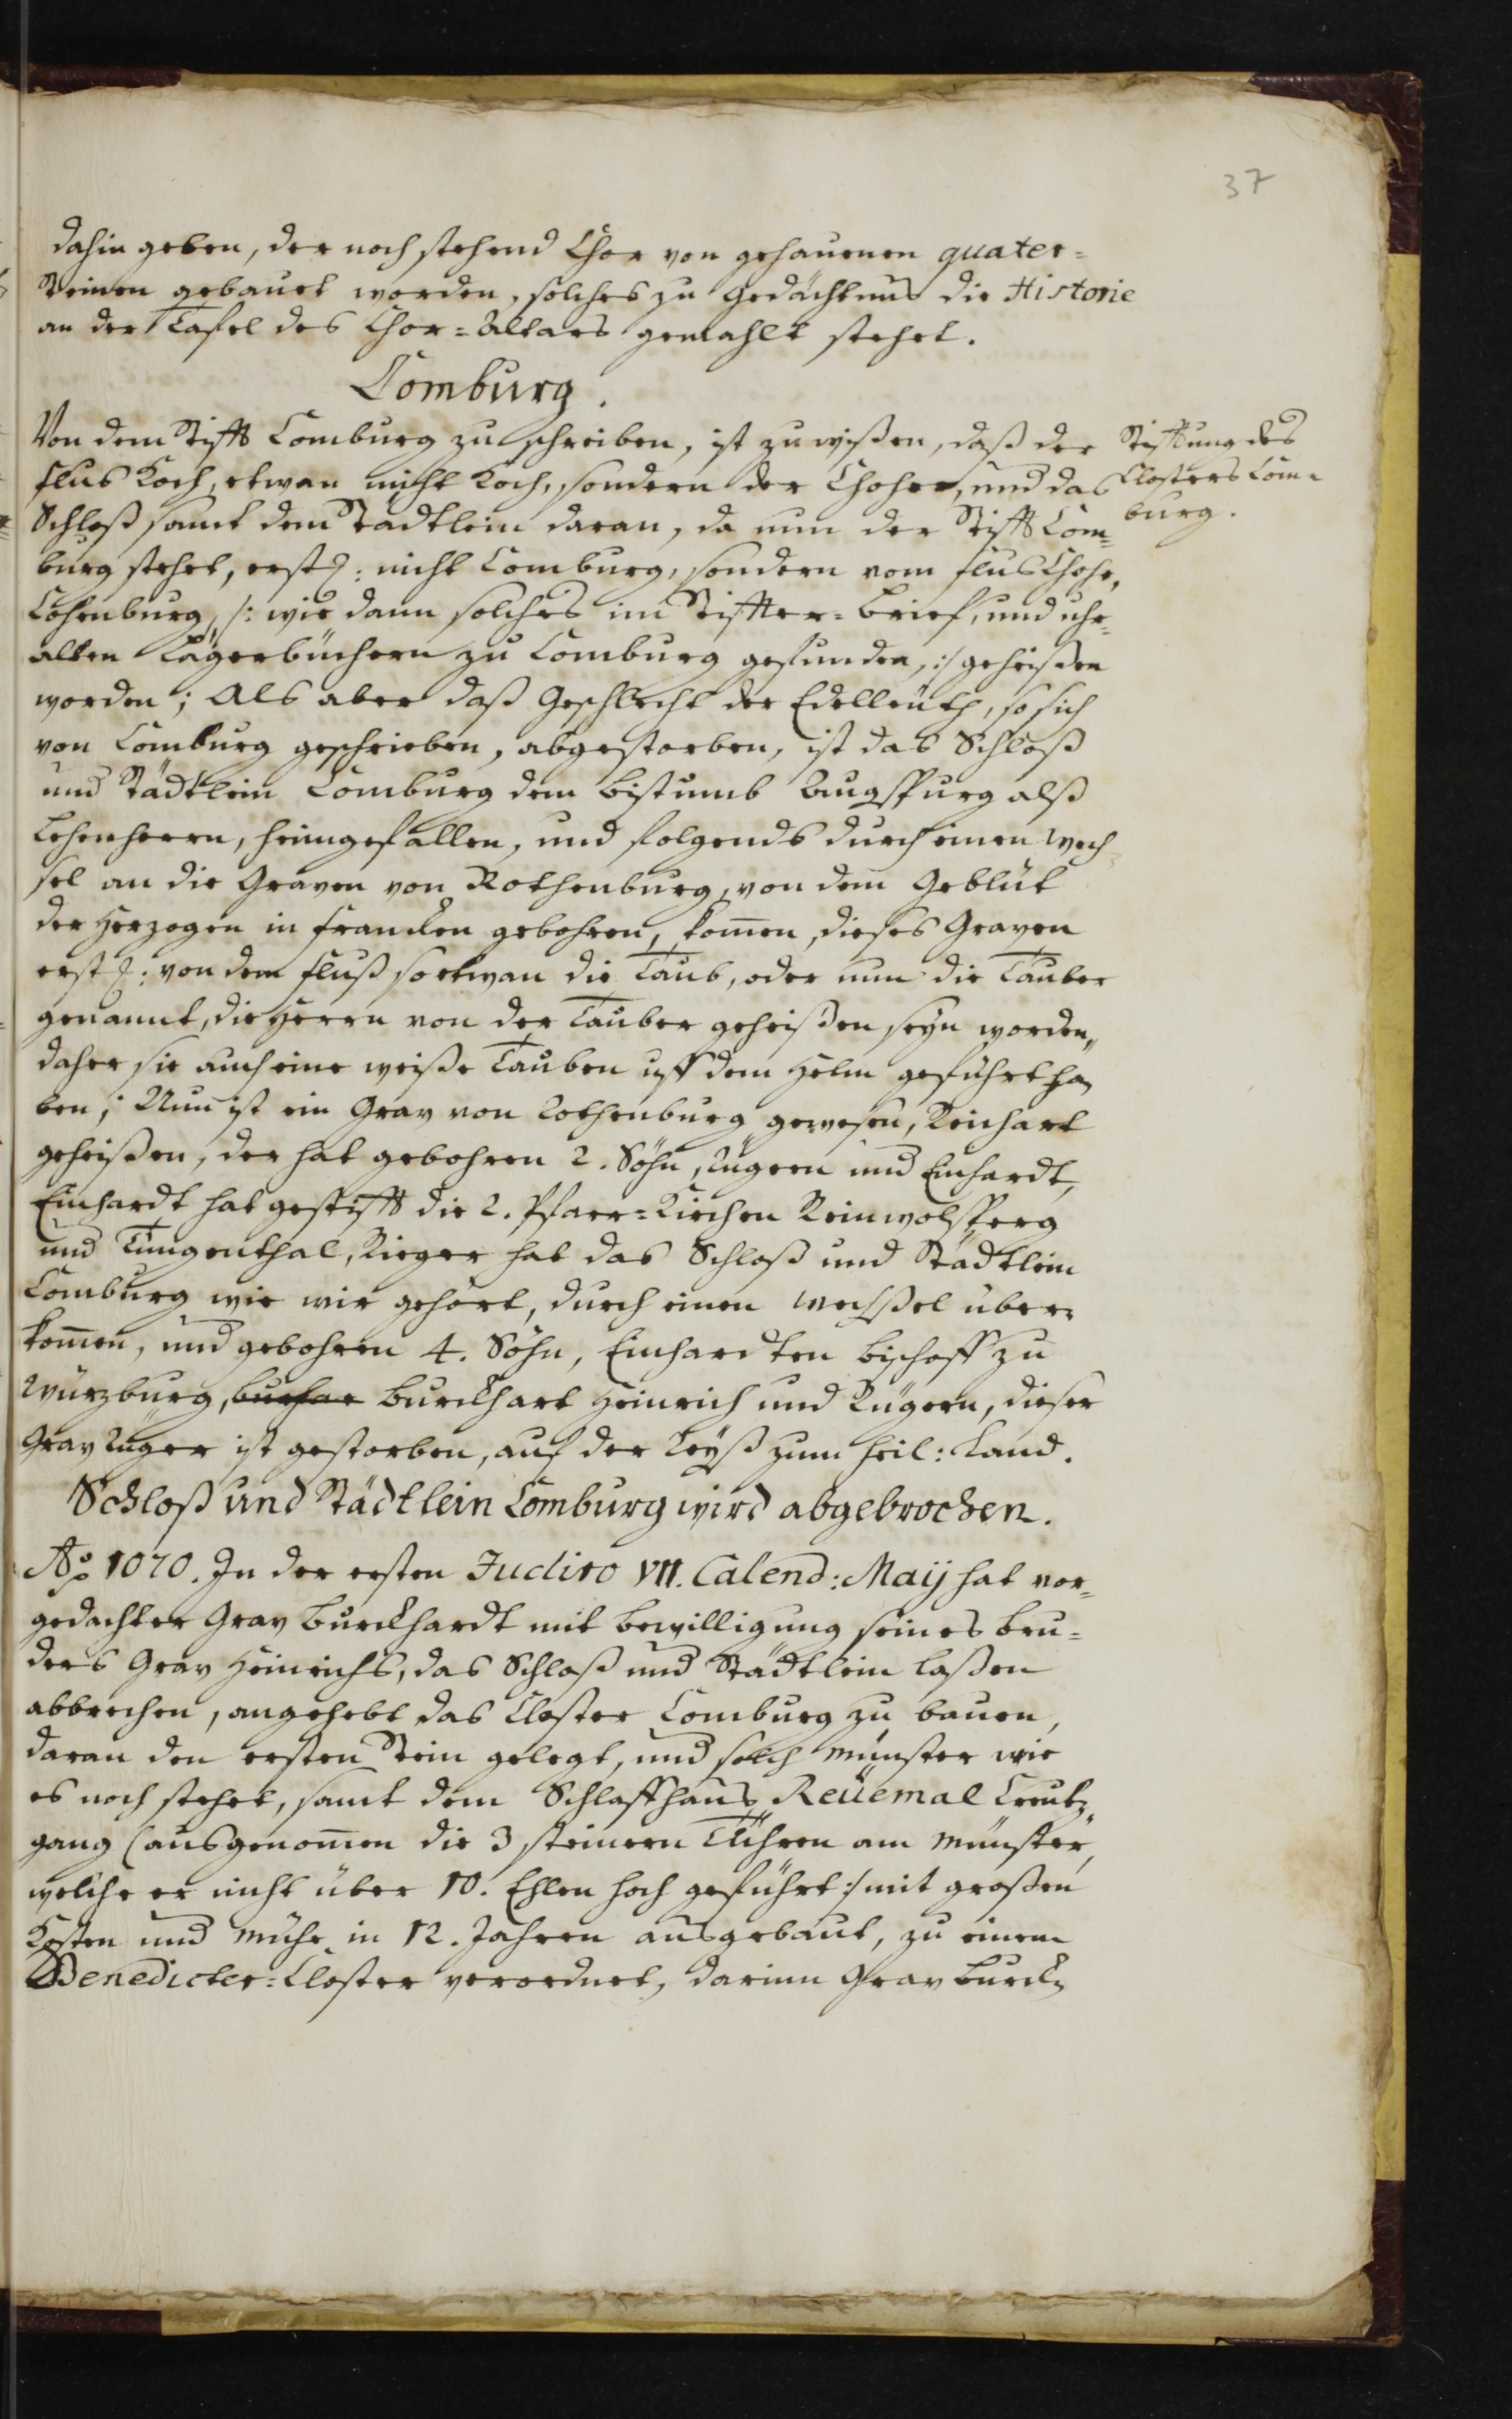 37
dahin geben, der noch stehend Chor von gehauenen quater=
Steinen gebauet worden, solches zu Gedächtnus die Historie
an der Tafel des Chor=Altars gemahlt stehet.
Comburg.
Von dem Stifft Comburg zu schreiben, ist zu wißen, daß der
flus Koch, etwan nicht Koch, sondern der Chohe, und das
Schloß samt dem Städtlein daran, da nun der Stifft Com=
burg stehet, erstl: nicht Comburg, sondern vom flus Chohe,
Cohenburg, /: wie dann solches im Stiffter=brief, und uhr=
alten Lägerbüchern zu Comburg gefunden, :/ geheißen
worden; Als aber daß Geschlecht der Edelleuth, so sich
von Comburg geschrieben, abgestorben, ist das Schloß
und Städtlein Comburg dem Bistumb Augspurg alß
Lehenherrn, heimgefallen, und folgends durch einen Wech=
sel an die Graven von Rothenburg, von dem Geblüt
der Herzogen in francken gebohren, kom̄en, dieses Graven
erstl: von dem fluß so etwan die Taub, oder nun die Tauber
genannt, die Herrn von der Tauber geheißen seyn worden,
daher sie auch eine weiße Tauben uff dem Helm geführt ha=
ben; Nun ist ein Grav von Rothenburg gewesen, Reichart
geheißen, der hat gebohren 2. Söhn, Rügern und Einhardt,
Einhardt hat gestifft die 2. Pfarr=Kirchen Reinwolsperg
und Tüngenthal, Rieger hat das Schloß und Städtlein
Comburg wie wir gehört, durch einen Wechßel über=
kom̄en, und gebohren 4. Söhn, Einhardten Bischoff zu
Würzburg, burhar Burckhart Heinrich und Rügern, dieser
Grav Rüger ist gestorben, auf der Reyß zum heil: Land.
Schloß und Städtlein Comburg wird abgebrochen.
Ao 1070. In der ersten Indito VII. Calend: Maij hat vor=
gedachter Grav Burckhardt mit bewilligung seines bru=
ders Grav Heinrichs, das Schloß und Städtlein laßen
abbrechen, angehebt das Closter Comburg zu bauen,
daran den ersten Stein gelegt, und solch Münster wie
es noch stehet, samt dem Schlaffhaus Reüemal Creutz=
gang (ausgenom̄en die 3 steinern Thüren am Münster,
welche er nicht über 10. Ehlen hoch geführt :/ mit großen
Kosten und Mühe in 12. Jahren ausgebaut, zu einem
Benedicter=Closter verordnet, darinn Grav Burck=
Stifftung des
Closters Com=
burg.